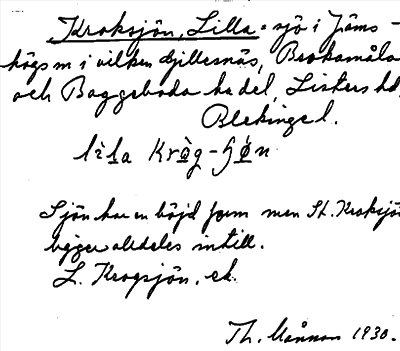 Kroksjön, Lilla = sjö i Jäms-
högs sn i vilken Gillesnäs, Brokamåla
och Baggeboda ha del, Listers hd,
Blekinge l.
lìla kråg-ʃøn
Sjön har en böjd form men St. Kroksjön
ligger alldeles intill.
L. Krogsjön, ek.
Th. Månsson 1930.